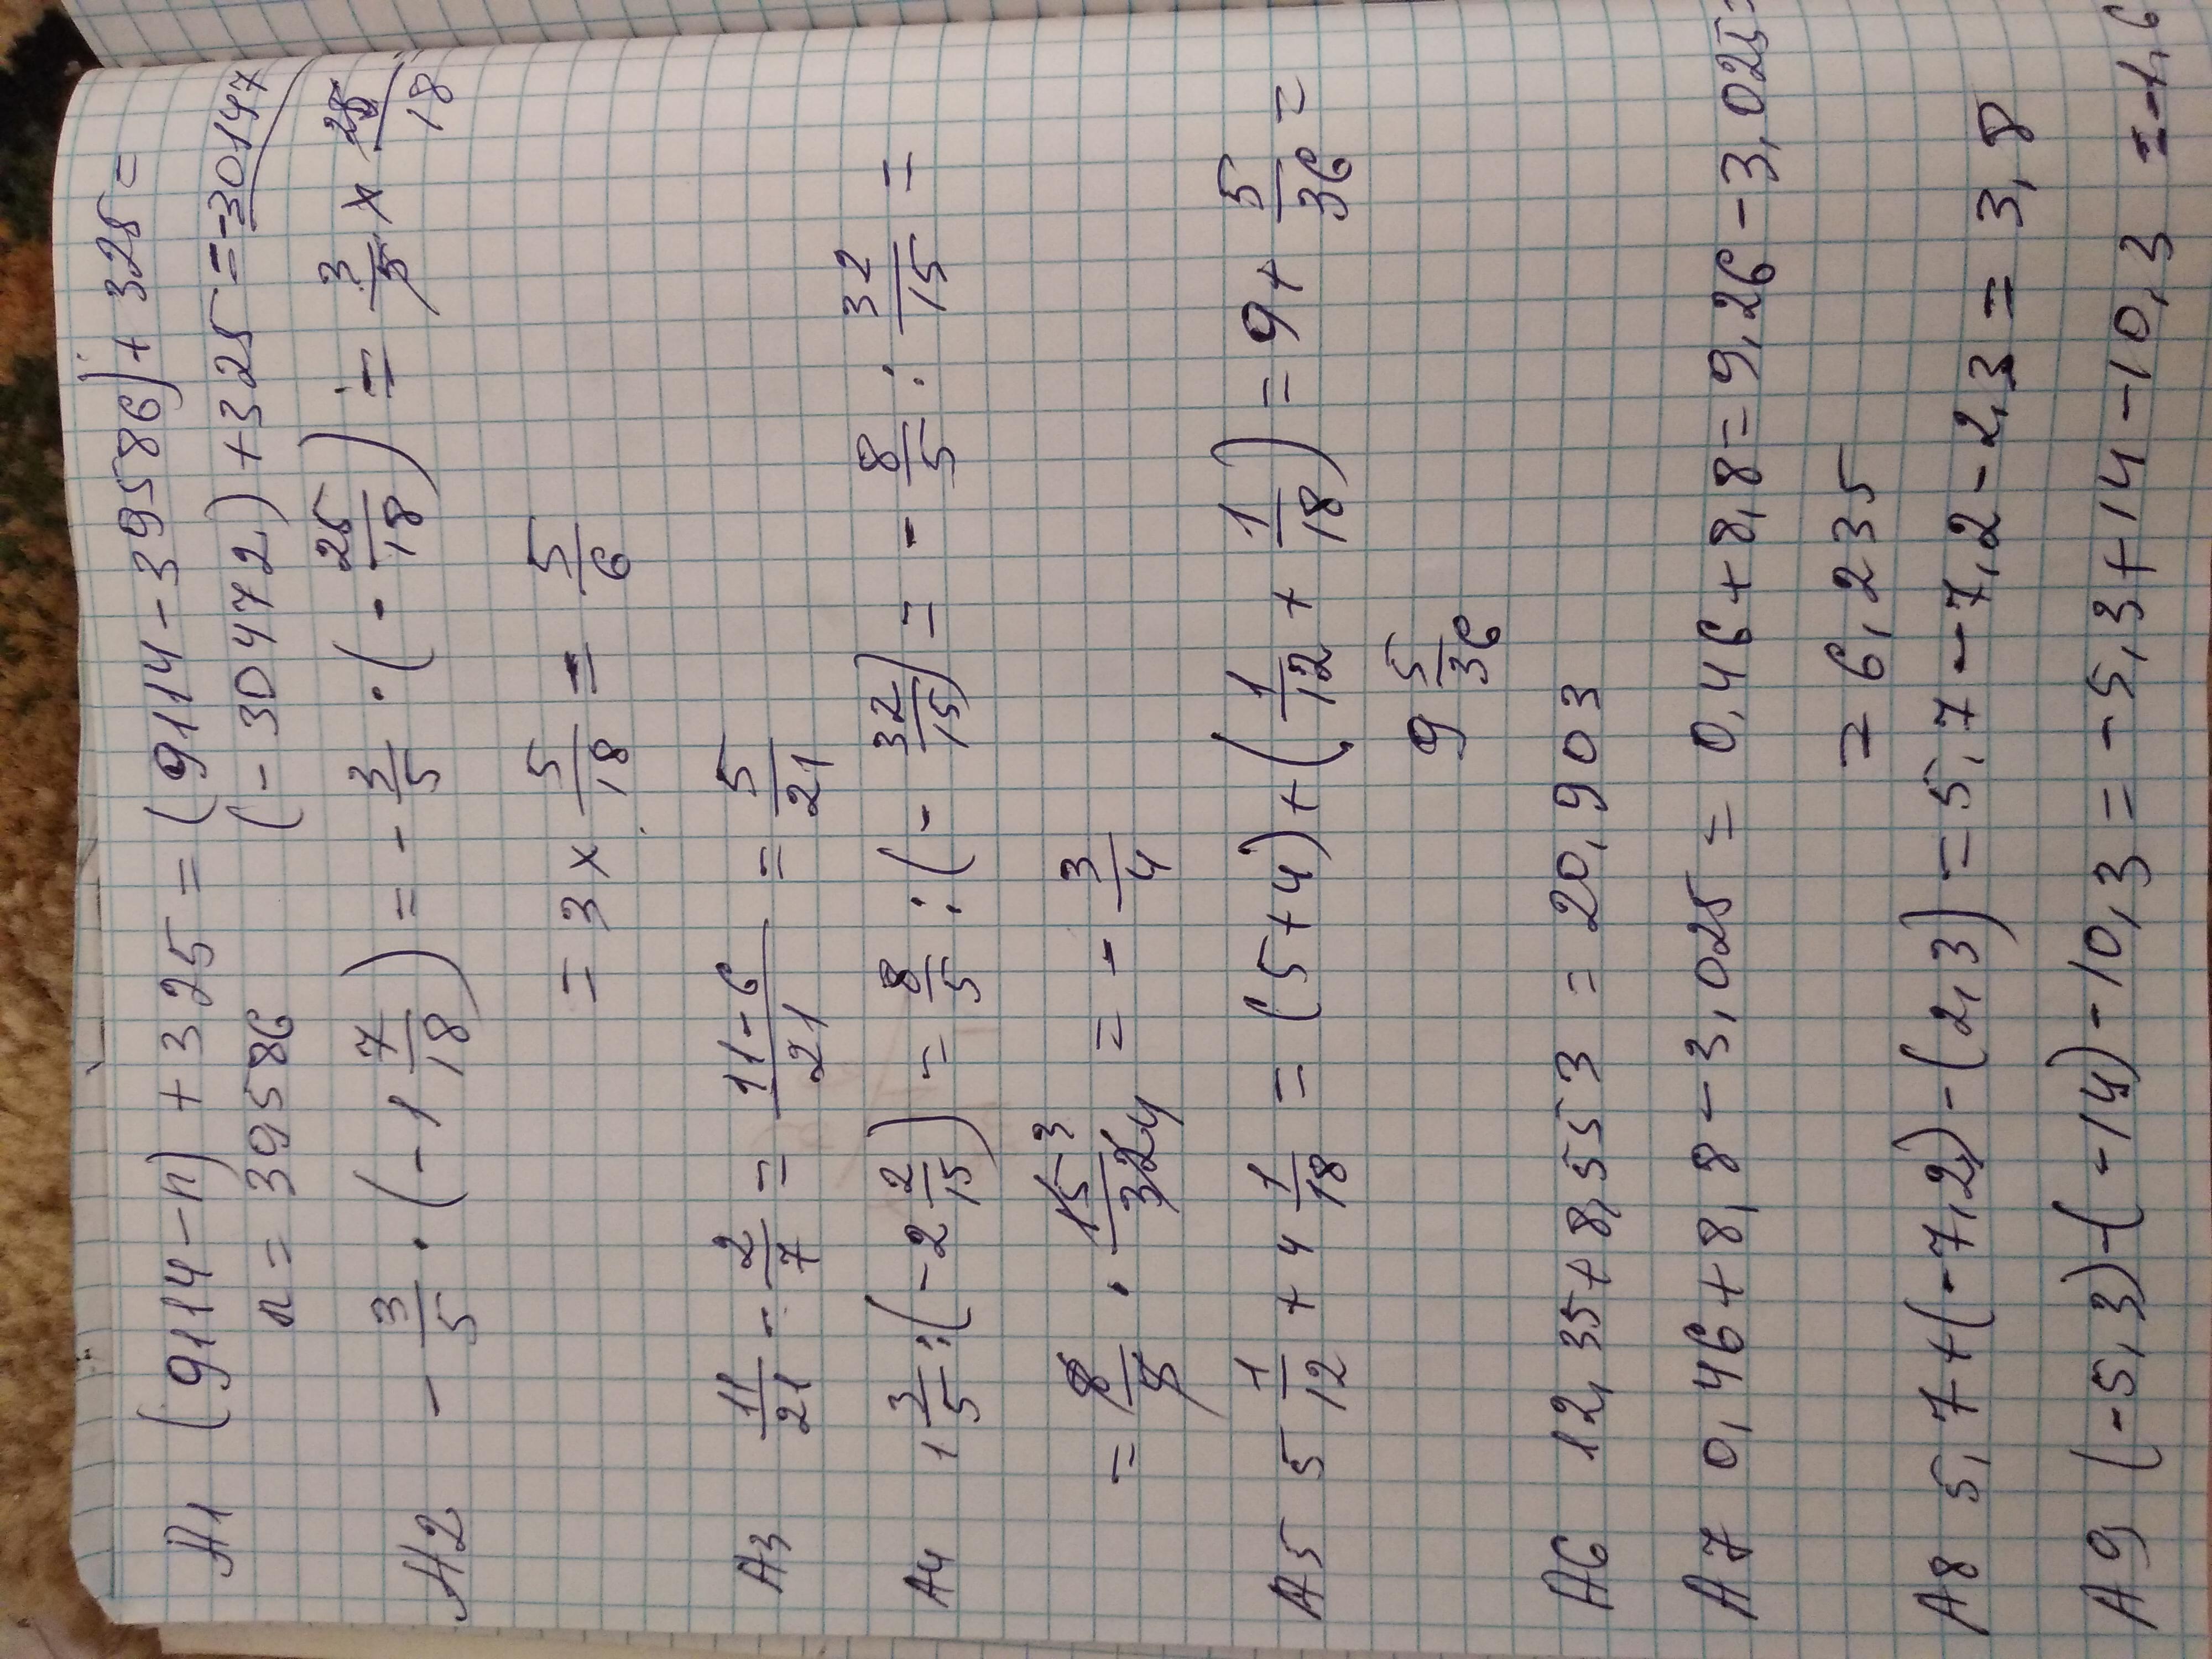 A1 (9114-n)+325=(9114-39586)+325=
n=39586 (-30472)+325=-30147
A2 -3/5·(-1 7/18)=-3/5·(-25/18)=3/5×25/18
=3×5/18=5/6
A3 11/21-2/7=11-6/21=5/21
A4 1 3/5:(-2 2/15)=8/5:(-32/15)=-8/5:32/15=
=8/5·15 3/32 4=-3/4
A5 5 1/12+4 1/18=(5+4)+(1/12+1/18)=9+5/36=
9 5/36
A6 12,35+8,553=20,903
A7 0,46+8,8-3,025=0,46+8,8=9,26-3,025=
=6,235
A8 5,7+(-7,2)-(2,3)=5,7-7,2-2,3=3,8
A9 (-5,3)-(-14)-10,3=-5,3+14-10,3=-1,6